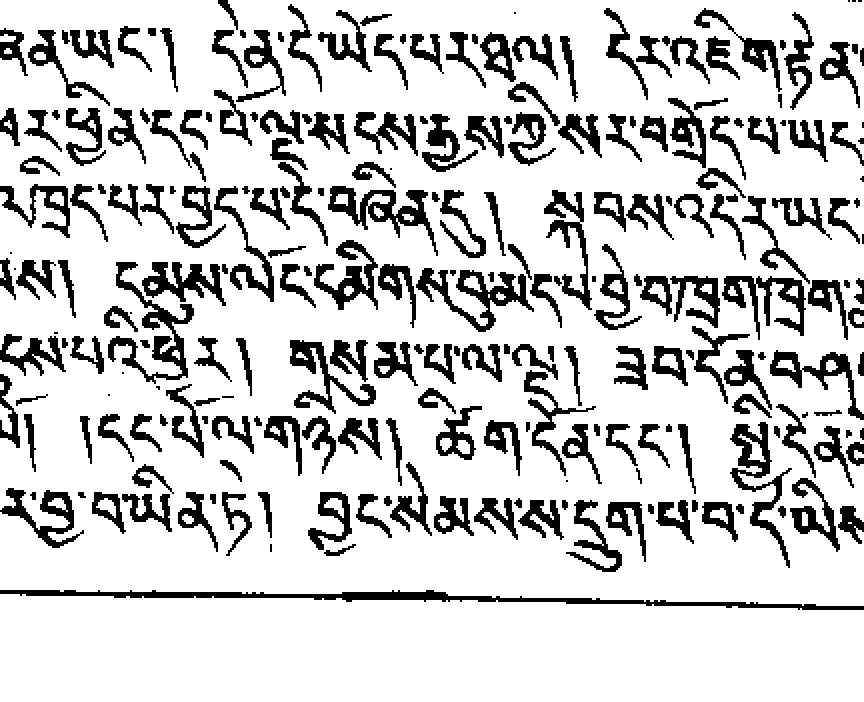 ཟན་ཡང་། དེ་ན་དེ་ཡོད་པར་ཐལ། དེར་འཇིག་རྟེན་
པར་ཕྱིན་དང་པོ་ལྔ་ས་ངས་རྒྱས་ཀྱི་སར་བགྲོད་པ་ཡང་
ལ་ཁྲིད་པར་བྱེད་པ་དེ་བཞིན་དུ། སྐབས་འདིར་ཡང་
དམུས་ལོང་དམིགས་བུ་མེད་པ་བྱེ་བ་ཁྲག་ཁྲིག་
ངས་པའི་ཕྱིར། གསུམ་པ་ལ་ལྔ། ཟབ་དོན་བ
།དང་པོ་ལ་གཉིས། ཚིག་དོན་དང་། སྤྱི་དོན་
ར་བྱ་བ་ཡིན་ཏེ། བྱང་སེམས་ས་དྲུག་པ་བ་དེ་ཡིས